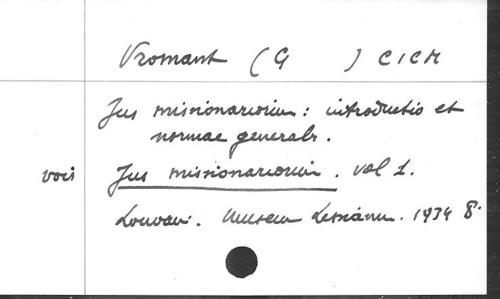 Vromant (G ) CICM
Jus missionariorum : introductio et
normae generals.
vois Jus missionariorum . vol 1.
Louvain. Museum Lessianum. 1934 8°